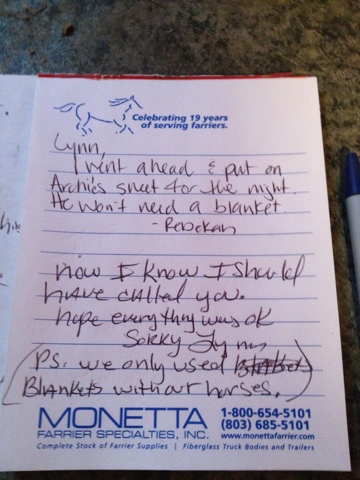 Celebrating 19 years
of serving farriers.
Lynn,
I went ahead & put on
Archie's sheet for the night.
He won't need a blanket.
- Rebekah
now I know I should
have called you.
hope everything was ok
Sorry Lynn
(PS. we only used
Blankets without horses.)
MONETTA
FARRIER SPECIALTIES, INC.
1-800-654-5101
(803) 685-5101
www.monettafarrier.com
Complete Stock of Farrier Supplies | Fiberglass Truck Bodies and Trailers